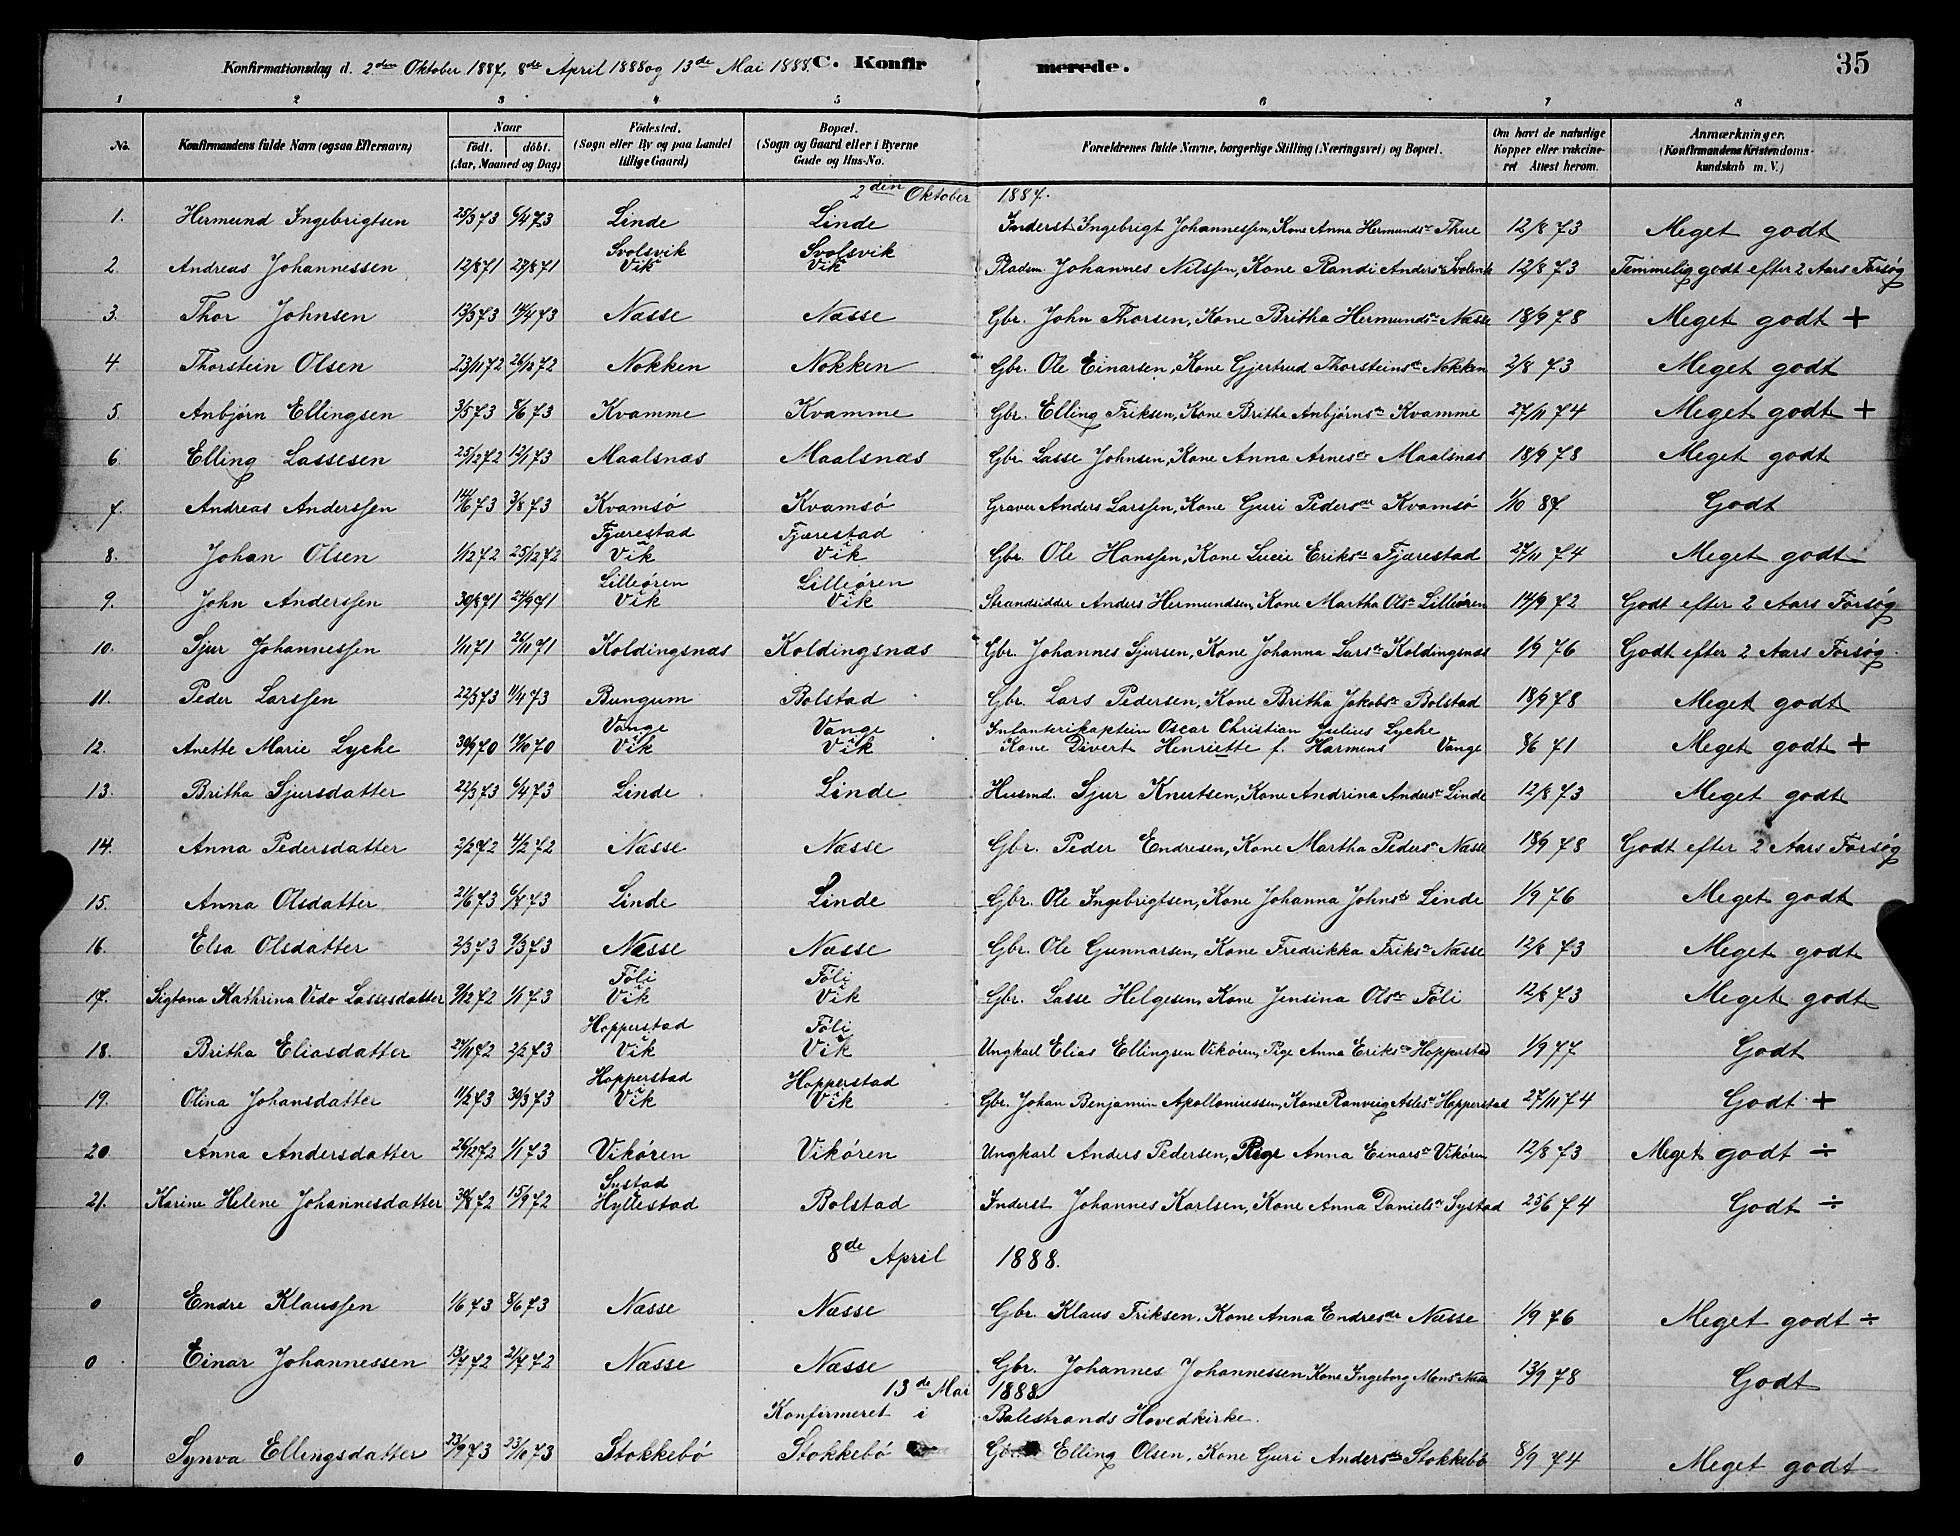 Konfirmationsdag d. 2den Oktober 1887, 8de April 1888 og 13de Mai 1888. C. Konfirmerede. 35
1 2 3 4 5 6 7 8
No. Konfirmandens fulde Navn (ogsaa Efternavn) Naar født. døbt. (Aar, Maaned og Dag) Fødested. (Sogn eller By og paa Landet tillige Gaard) Bopæl. (Sogn og Gaard eller i Byerne Gade og Hus-No. Forældrenes fulde Navne, borgerlige Stilling (Næringsvei) og Bopæl. Om havt de naturlige Kopper eller vakcineret Attest herom. Anmærkninger. (Konfirmandens Kristendomskundskab m. V.)
2den Oktober 1887.
1. Hermund Ingebrigtsen 25/3 73 6/4 73 Linde Linde Inderst Ingebrigt Johannessen, Kone Anna Hermundsdr Thue 12/8 73 Meget godt
2. Andreas Johannessen 12/8 71 27/8 71 Svolsvik Vik Svolsvik Vik Pladsm. Johannes Nilssen, Kone Randi Andersdr Svolsvik 12/8 73 Temmelig godt efter 2 Aars Forsøg
3. Thor Johnsen 13/3 73 14/4 73 Næsse Næsse Gbr. John Thorsen, Kone Britha Hermundsdr Næsse 18/9 78 Meget godt +
4. Thorstein Olsen 23/11 72 26/12 72 Nokken Nokken Gbr. Ole Einarsen, Kone Gjertrud Thorsteinsdr Nokken 2/8 73 Meget godt
5. Anbjørn Ellingsen 3/5 73 8/6 73 Kvamme Kvamme Gbr. Elling Friksen, Kone Britha Anbjørnsdr Kvamme 27/11 74 Meget godt +
6. Elling Lassesen 25/12 72 12/1 73 Maalsnæs Maalsnæs Gbr. Lasse Johnsen, Kone Anna Arnesdr Maalsnæs 18/9 78 Meget godt
7. Andreas Anderssen 14/6 73 3/8 73 Kvamsø Kvamsø Graver Anders Larssen, Kone Guri Pedersdtr Kvamsø 1/10 87 Godt
8. Johan Olsen 1/12 72 25/12 72 Fjærestad Vik Fjærestad Vik Gbr. Ole Hanssen, Kone Lucie Eriksdr Fjærestad 27/11 74 Meget godt
9. John Anderssen 30/8 71 24/9 71 Lilleøren Vik Lilleøren Vik Strandsidder Anders Hermundsen, Kone Martha Olsdr Lilleøren 14/9 72 Godt efter 2 Aars Forsøg
10. Sjur Johannessen 1/11 71 26/11 71 Koldingsnæs Koldingsnæs Gbr. Johannes Sjursen, Kone Johanna Larsdr Koldingsnæs 1/9 76 Godt efter 2 Aars Forsøg.
11. Peder Larssen 22/3 73 11/4 73 Bungum Bolstad Gbr. Lars Pedersen, Kone Britha Jakobsdr Bolstad 18/9 78 Meget godt
12. Anette Marie Lyche 30/9 70 19/10 70 Vange Vik Vange Vik Infanterikaptein Oscar Christian Julius Lyche
Kone Divert Henriette f. Harmens Vange 8/6 71 Meget godt +
13. Britha Sjursdatter 22/3 73 6/4 73 Linde Linde Husmd. Sjur Knutsen, Kone Andrina Andersdr Linde 12/8 73 Meget godt
14. Anna Pedersdatter 2/2 72 4/2 72 Næsse Næsse Gbr. Peder Endresen, Kone Martha Pedersdr Næsse 18/9 78 Godt efter 2 Aars Forsøg
15. Anna Olsdatter 21/6 73 6/7 73 Linde Linde Gbr. Ole Ingebrigtsen, Kone Johanna Johnsdr Linde 1/9 76 Meget godt
16. Elsa Olsdatter 2/3 73 9/3 73 Næsse Næsse Gbr. Ole Gunnarsen, Kone Fredrikka Friksdr Næsse 12/8 73 Meget godt
17. Sigtona Kathrina Vedo Lassesdatter 9/12 72 1/1 73 Føli Vik Føli Vik Gbr. Lasse Helgesen, Kone Jensina Olsdr Føli 12/8 73 Meget godt
18. Britha Eliasdatter 27/11 72 2/2 73 Hopperstad Vik Føli Vik Ungkarl Elias Ellingsen Vikøren, Pige Anna Eriksdr Hopperstad 1/9 77 Godt
19. Olina Johansdatter 11/2 73 30/3 73 Hopperstad Vik Hopperstad Vik Gbr. Johan Benjamin Apolloniussen, Kone Ranveig Aslesdr Hopperstad 27/11 74 Godt +
20 Anna Andersdatter 26/12 72 1/1 73 Vikøren Vikøren Ungkarl Anders Pedersen, Pige Anna Einarsdr Vikøren 12/8 73 Meget godt ÷
21. Karine Helene Johannesdatter 30/8 72 15/9 72 Systad Hyllestad Bolstad Inderst Johannes Karlsen, Kone Anna Danielsdr Systad 25/6 74 Godt ÷
8de April 1888.
0 Endre Klaussen 1/6 73 8/6 73 Næsse Næsse Gbr. Klaus Friksen, Kone Anna Endresdr Næsse 1/9 76 Meget godt ÷
0 Einar Johannessen 13/7 72 21/7 72 Næsse Næsse Gbr. Johannes Johannessen Kone Ingeborg Monsdr Næsse 13/9 78 Godt
13de Mai 1888
Konfirmeret i Balestrands Hovedkirke.
0 Synva Ellingsdatter 23/9 73 23/10 73 Stokkebø Stokkebø Gbr. Elling Olsen, Kone Guri Andersdr Stokkebø 8/9 74 Meget godt